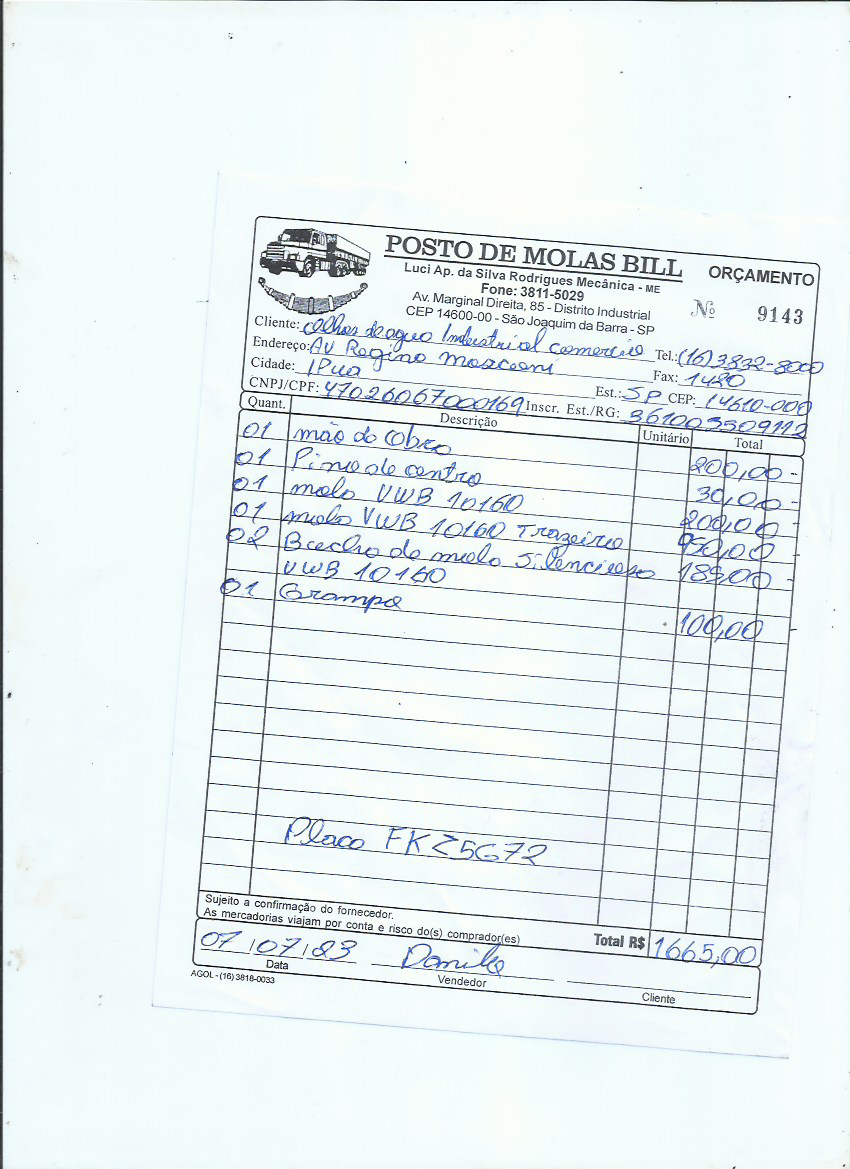 POSTO DE MOLAS BILL
ORÇAMENTO
Luci Ap. da Silva Rodrigues Mecânica - ME
Fone: 3811-5029
Av. Marginal Direita, 85 - Distrito Industrial
CEP 14600-00 - São Joaquim da Barra - SP
Nº 9143
Cliente: olhos de agua Industrial comercio Tel.: (16) 3832-8000
Endereço: AV Regino Mosconi Fax: 1480
Cidade: IPua Est.: SP CEP: 14610-000
CNPJ/CPF: 47026067000169 Inscr. Est./RG: 361003509112
Quant. Descrição Unitário Total
01 mão do obra 200,00 -
01 Pino de centro 30,00 -
01 mola VWB 10160 200,00
01 mola VWB 10160 Trazeira 950,00
02 de mola Silencioso 185,00 -
VWB 10160
01 Grampo 100,00
Placa FKZ5G72
Sujeito a confirmação do fornecedor.
As mercadorias viajam por conta e risco do(s) comprador(es)
Total R$ 1665,00
07/07/23
Data Vendedor Cliente
AGOL - (16) 3818-0033